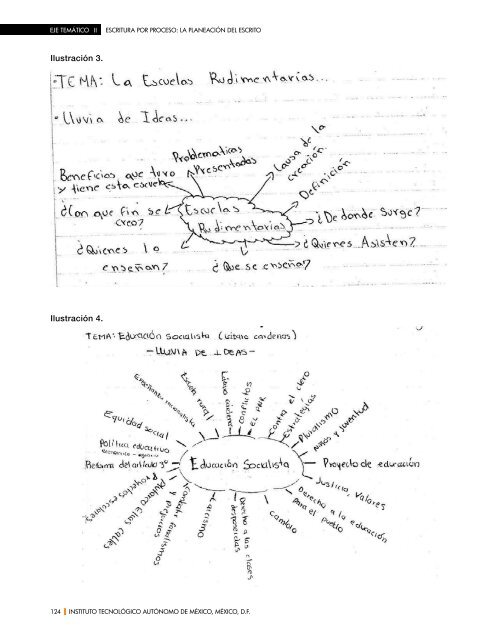 EJE TEMÁTICO II ESCRITURA POR PROCESO: LA PLANEACIÓN DEL ESCRITO
Ilustración 3.
TEMA: La Escuelas Rudimentarias...
Lluvia de Ideas...
Problematicas
Presentadas
Causa de la
creación
Beneficios que tuvo
y tiene esta escuela
Definición
¿Con que fin se
creo?
Escuelas
Rudimentarias
¿De donde Surge?
¿Quienes lo
enseñan?
¿Quienes Asisten?
¿Que se enseña?
Ilustración 4.
TEMA: Educación Socialista (Lázaro cardenas)
- LLUVIA DE IDEAS -
Enseñanza racionalista
Escuela rural
Lázaro cárdenas
conflictos
EL PNR
contra el clero
Estrategias
Pluralismo
niños y juventud
Equidad social
Política educativa
económica - agraria
Reforma del artículo 3°
Educación Socialista
Proyecto de educación
Justicia, Valores
Derecho a la educación
para el pueblo
cambio
Derecho a las clases
desprotegidas
Laicismo
Combatir fanatismos
y prejuicios
Mejora a las calles
Proyectos escolares
124 INSTITUTO TECNOLÓGICO AUTÓNOMO DE MÉXICO, MÉXICO, D.F.